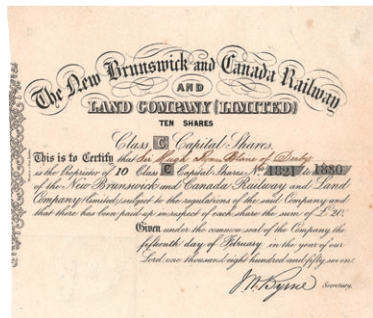 The New Brunswick and Canada Railway
AND
LAND COMPANY (LIMITED)
TEN SHARES
Class C Capital Shares.
This is to Certify that Sir Hugh of
is the Proprietor of 10 Class C Capital Shares No. 1821 to 1830
of the New Brunswick and Canada Railway and Land
Company (Limited) subject to the regulations of the said Company and
that there has been paid up in respect of each share the sum of £20.
Given under the common seal of the Company the
fifteenth day of February in the year of our
Lord one thousand eight hundred and fifty seven.
J W Byrne Secretary.